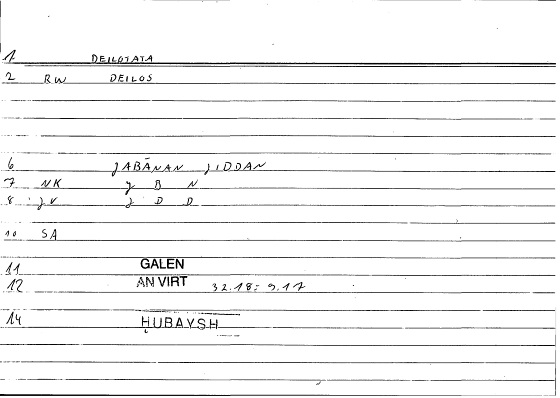 1. DEILOTATA
2 RW DEILOS
6 JABĀNAN JIDDAN
7 NK J B N
8 JV J D D
10 SA
11 GALEN
12 AN VIRT 32.18 = 9.17
14 ḤUBAYSH